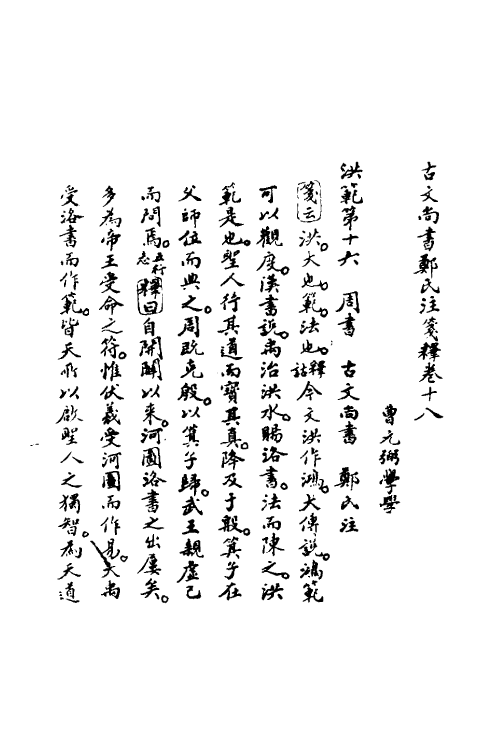 古文尚書鄭氏注箋釋卷十八
曹元弼學
洪範第十六　周書　古文尚書　鄭氏注
箋云洪大也範法也釋詁今文洪作鴻大傳說鴻範
可以觀度漢書說禹治洪水賜洛書法而陳之洪
範是也聖人行其道而寶其真降及于殷箕子在
父師位而典之周既克殷以箕子歸武王親虛己
而問焉五行志釋曰自開闢以來河圖洛書之出屢矣
多為帝王受命之符惟伏羲受河圖而作易大禹
受洛書而作範皆天所以啟聖人之獨智為天道